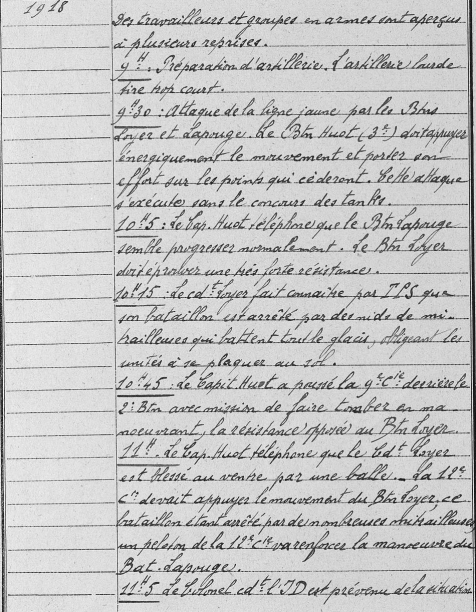 1918
Des travailleurs et groupes en armes sont aperçus
à plusieurs reprises.
9H. Préparation d'artillerie. L'artillerie lourde
tire trop court.
9H30 : Attaque de la ligne jaune par les Btns
Loyer et Lapouge. Le Btn Huot (3e) doit appuyer
énergiquement le mouvement et porter son
effort sur les points qui cèderont. Cette attaque
s'exécute sans le concours des tanks.
10H5 : Le Cap. Huot téléphone que le Btn Lapouge
semble progresser normalement. Le Btn Loyer
doit éprouver une très forte résistance.
10H15 : Le cdt Loyer fait connaître par TPS que
son bataillon est arrêté par des nids de mi-
trailleuses qui battent tout le glacis, obligeant les
unités à se plaquer au sol.
10H45 : Le Capit Huot a poussé la 9e Cie derrière le
2e Btn avec mission de faire tomber en ma
noeuvrant, la résistance opposée au Btn Loyer.
11H. Le Cap. Huot téléphone que le Cdt Loyer
est blessé au ventre par une balle. _ La 11e
Cie devait appuyer le mouvement du Btn Loyer, ce
bataillon étant arrêté par de nombreuses mitrailleuses
un peloton de la 11e Cie va renforcer la manoeuvre du
Bat. Lapouge.
11H5 Le Colonel cdt l'ID est prévenu de la situation